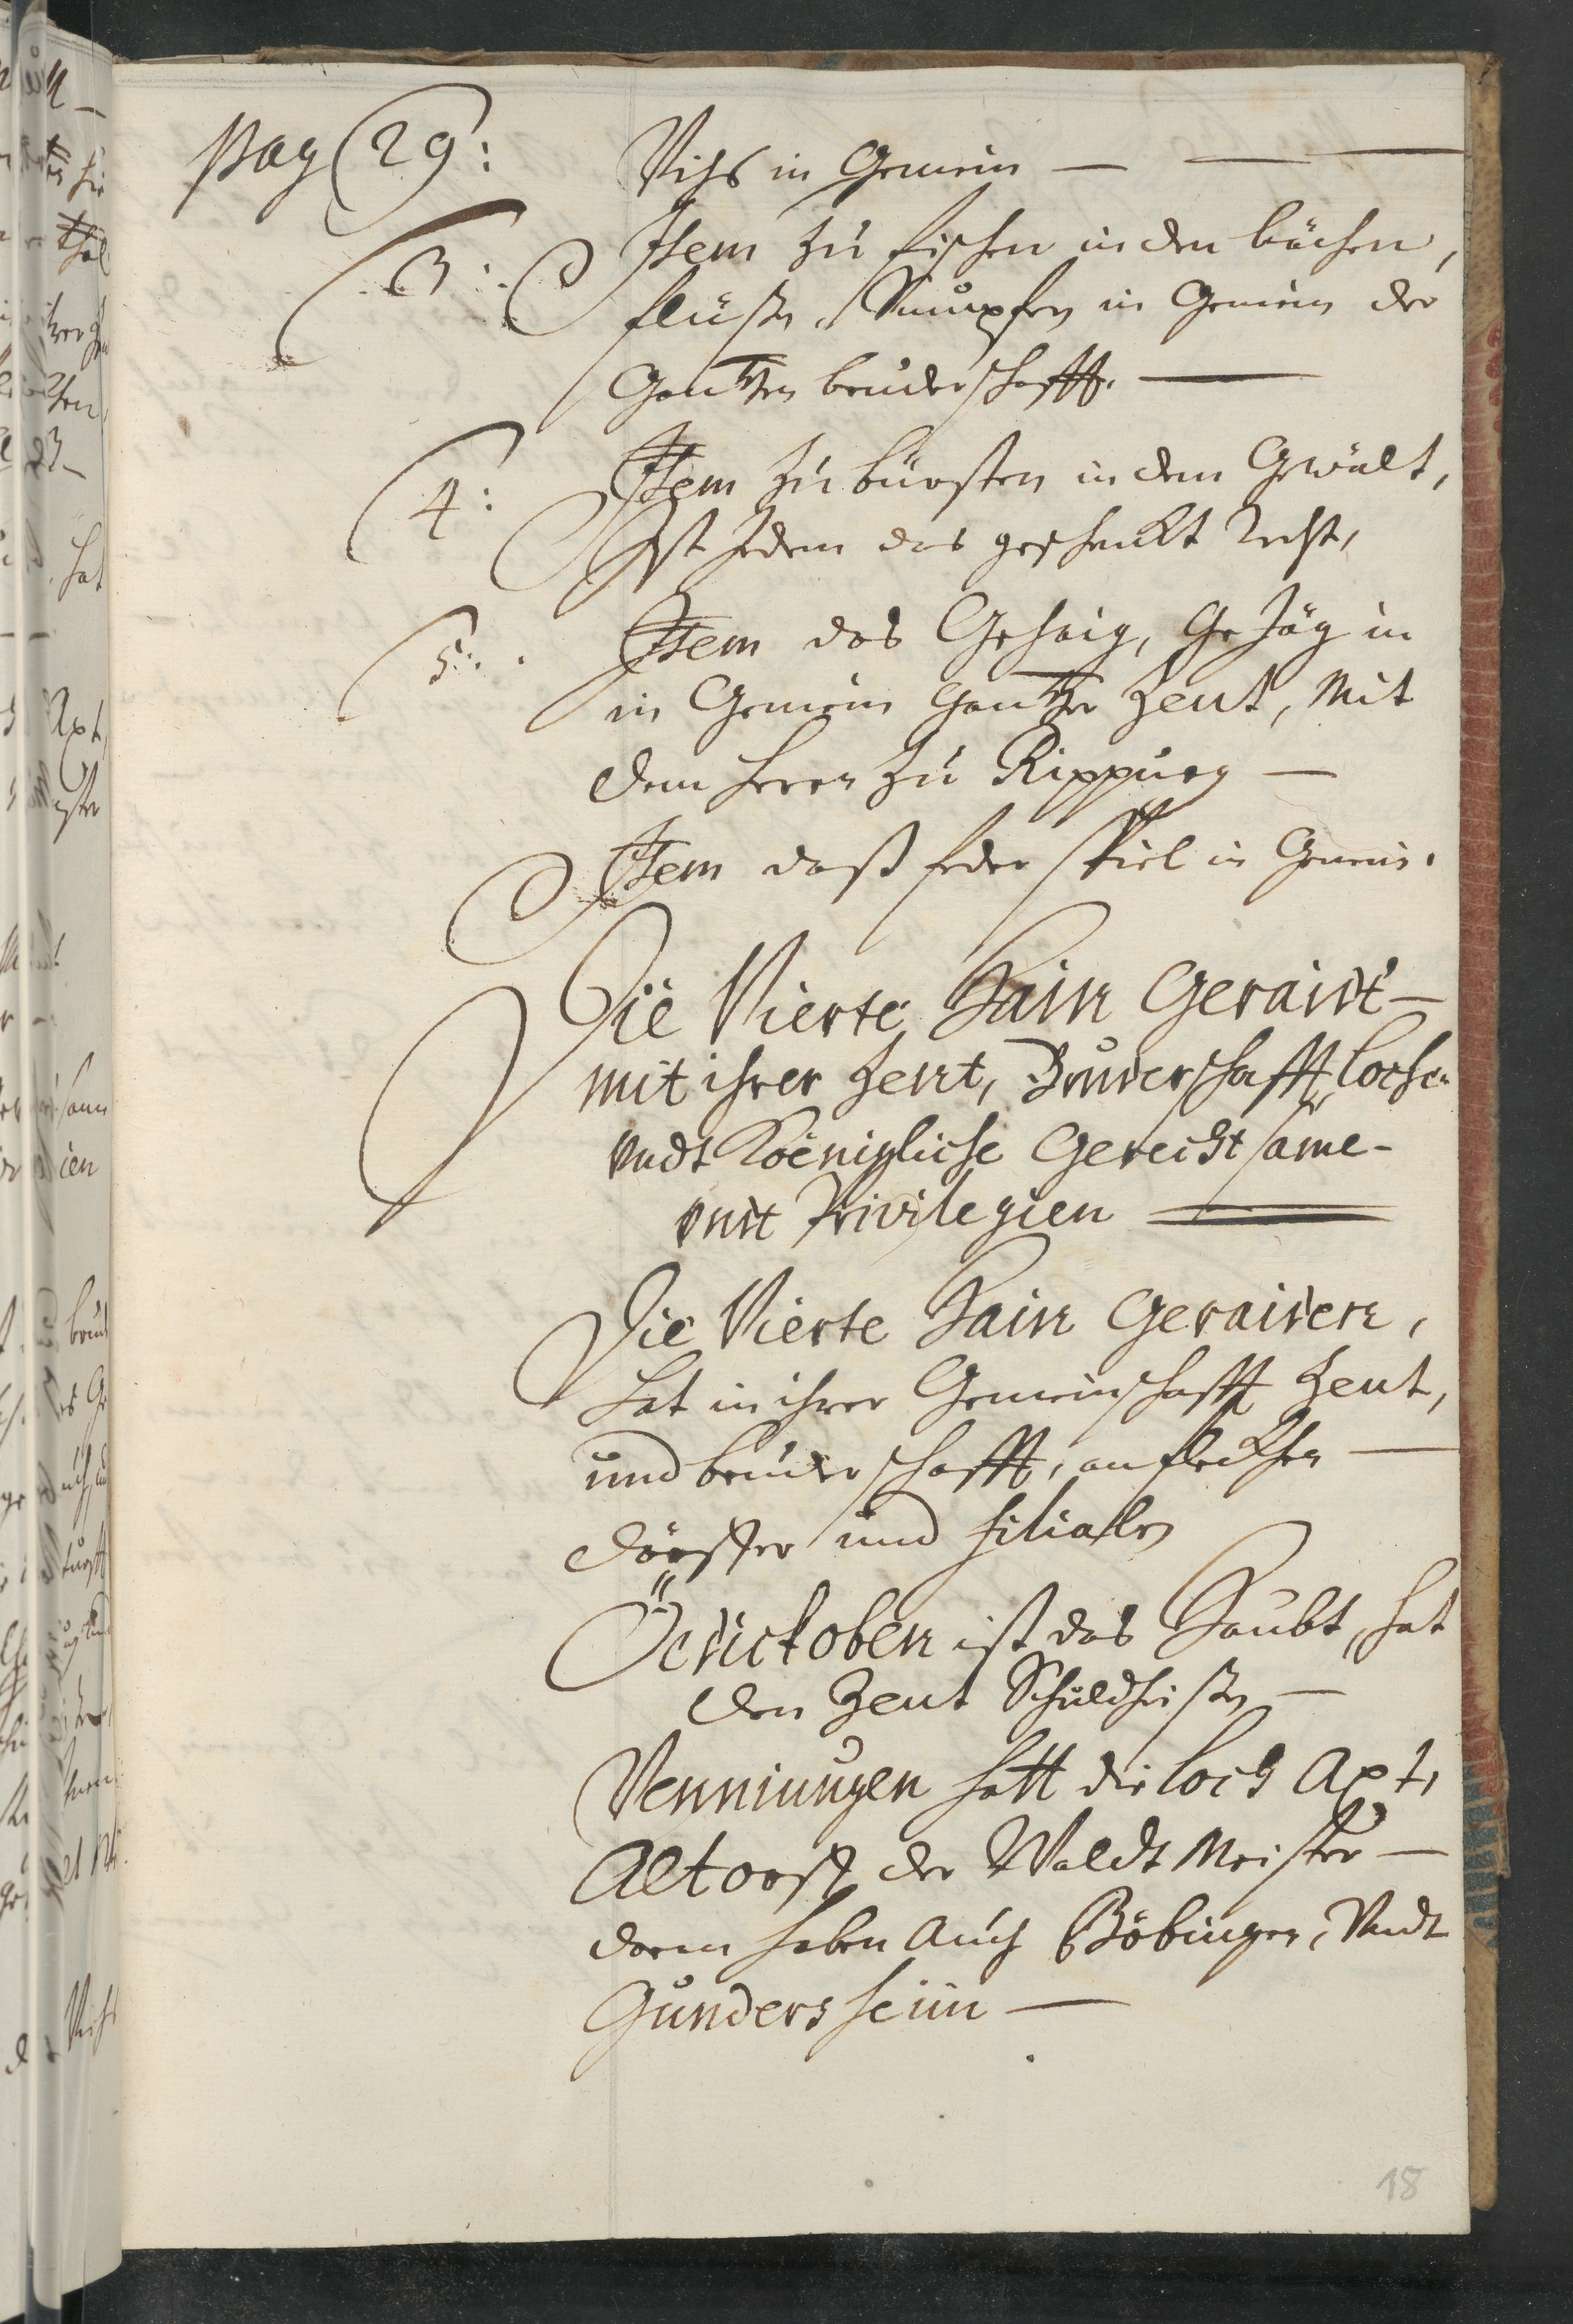 Pag 29:
Vihs in Gemein —
3: Item zu fischen in den bächen,
flüßen, Sümpfen in Gemein der
Gantzen bruderschafft. —
4: Item zu bürsten in dem Gewält,
Ist jedem das geschenckt Recht,
5: Item das Gehaig, Gejäg in
in Gemein Gantzer Zent, Mit
dem herrn zu Rippurg —
Item daß feder spiel in Gemein.
Die Vierte Hain Geraidt —
mit ihrer Zent, Bruderschafft, Loche
vndt Koenigliche Gerechtsame -
vndt Privilegien
Die Vierte Hain Geraiden,
hat in ihrer Gemeinschafft Zent,
und bruderschafft, an flecken —
dörffer und filialen
ist das Haubt, hat
den Zent Schuldheißen —
Venningen hatt die Loch Axt,
Altorff der Waldt Meister —
darin haben Auch Böbingen, Vndt
Gundersheim —
18